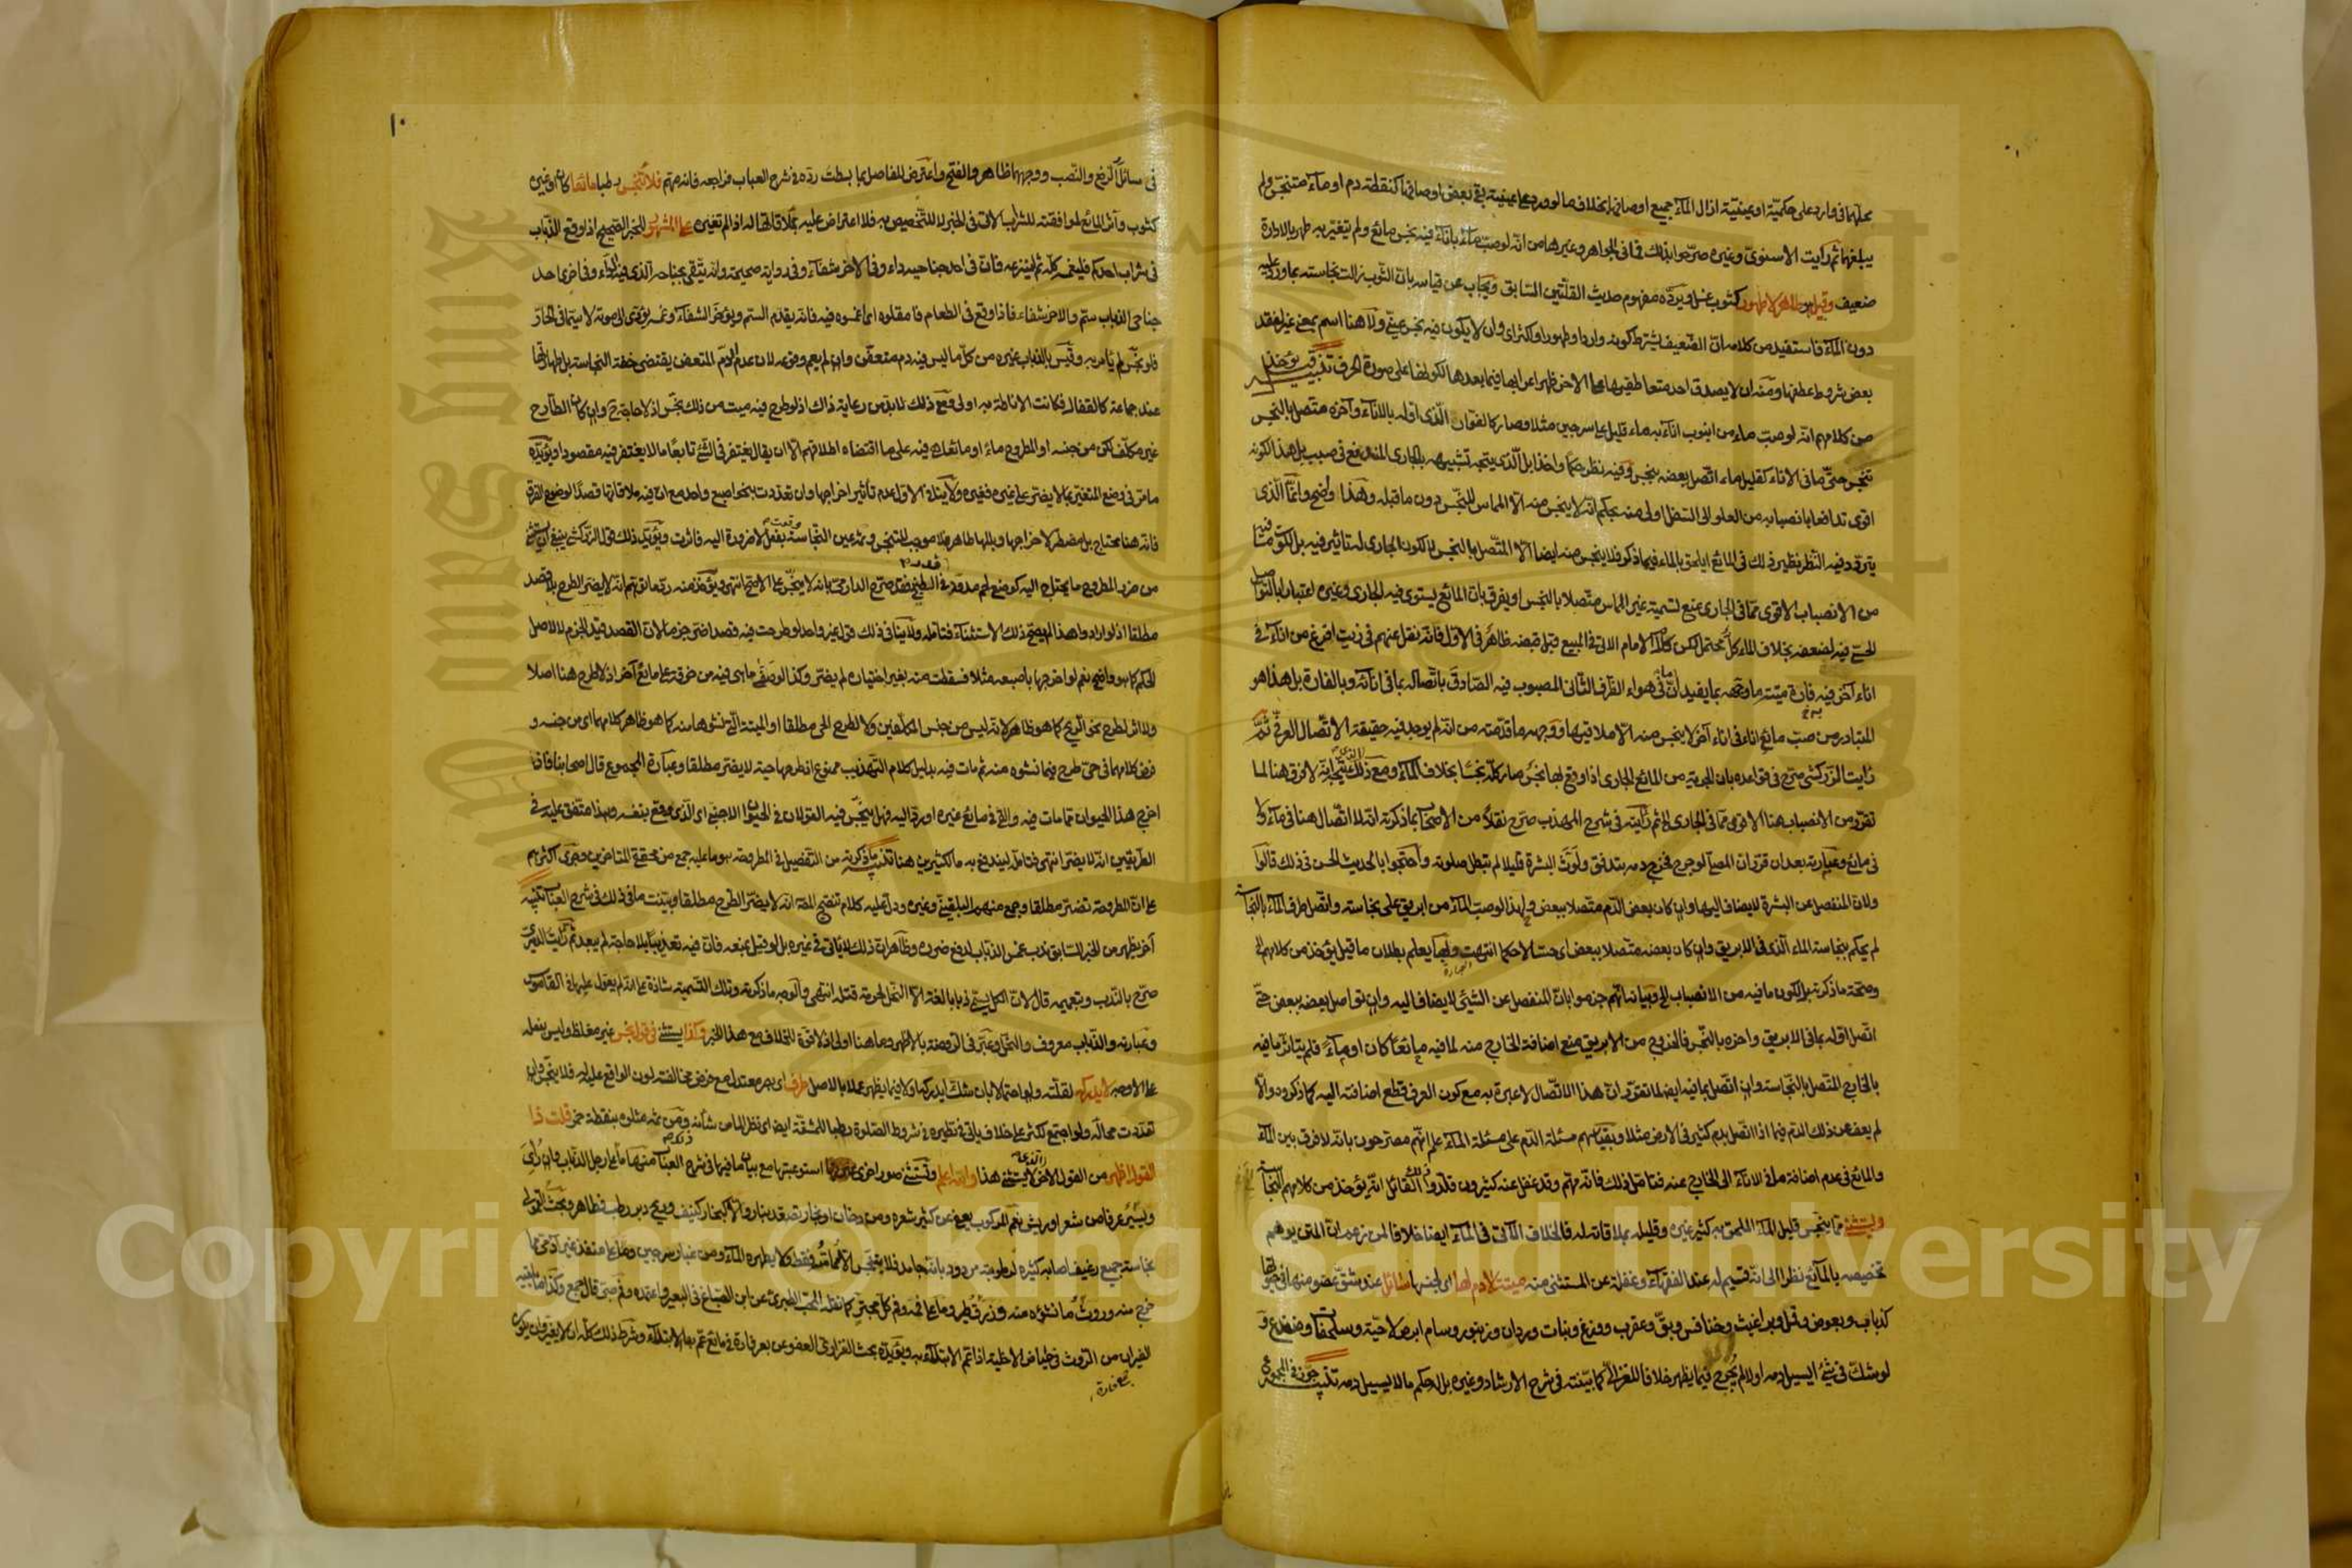 محلهما في وارد على حكمية او عينية ازال الماء جميع اوصافها بخلاف ما لو ورد على عينية بقي بعض اوصافها كنقطة دم او ماء متنجس ولم
يبلغهما ثم رايت الاسنوي وغيره صرحوا بذلك في الجواهر وغيرها من انه لو صب ماء باناء فيه نجس مائع ولم يتغير به طهر بالادارة
ضعيف وقيل هو طاهر لا طهور كثوب غسل ويرده مفهوم حديث القلتين السابق ويجاب عن قياسه بان الثوب زالت نجاسته بما ورد عليه
دون الماء فاستفيد من كلامه ان الضعيف يشترط كونه واردا وطهورا واكثر اي وان لا يكون فيه نجس عيني ولا هنا اسم بمعنى غير لفقد
بعض شروط عطفها ومنه ان لا يصدق احد متعاطفيها على الاخر ظهر اعرابها فيما بعدها لكونها على صورة الحرف تنبيه يؤخذ
من كلامهم انه لو صب ماء من انبوب اناء به ماء قليل على سرجين مثلا وصار كالفوار الذي اوله باللاناء وآخره متصل بالنجس
تنجس حتى ما في الاناء كقليل ماء اتصل بعضه بنجس وفيه نظر حكما واخذا بل الذي يتجه تشبيهه بالجاري المندفع في صبب بل هذا لكونه
اقوى تدافعا بانصبابه من العلو الى السفل اولى منه بحكم انه لا ينجس منه الا المماس للنجس دون ما قبله وهذا واضح وانما الذي
يتردد فيه النظر نظير ذلك في المائع ايلحق بالماء فيما ذكر فلا ينجس منه ايضا الا المتصل بالنجس لا لكون الجاري له تاثير فيه بل لكون ما فيه
من الانصباب الاقوى مما في الجاري يمنع تسمية غير المماس متصلا بالنجس او يفرق بان المائع يستوي فيه الجاري وغيره اعتبارا بالتواصل
الحسي فيه لضعفه بخلاف الماء كل محتمل لكن كلام الامام الاتي في المبيع قبل قبضه ظاهر في الاول فانه نقل عنهم في زيت افرغ من اناء في
اناء آخر فيه فارة ميتة ما وجهه بما يفيد ان ما في هواء الظرف الثاني المصبوب فيه الصادق باتصاله بما في انائه وبالفارة بل هذا هو
المتبادر من صب مائع اناء في اناء آخر لا ينجس منه الا ملاقيها ووجهه ما قدمته من انه لم يوجد فيه حقيقة الاتصال العرفي ثم
رايت الزركشي صرح في قواعده بان الجرية من المائع الجاري اذا وقع بها نجس صار كله نجسا بخلاف الماء ومع ذلك الذي يتجه انه لا فرق هنا لما
تقرر من الانصباب هنا الاقوى مما في الجاري ثم رايته في شرح المهذب صرح نقلا من الاصحاب بما ذكرته انه لا اتصال هنا في ماء ولا
في مائع وعبارته بعد ان قرر ان المصلي لو جرح فخرج دمه يتدفق ولوث البشرة قليلا لم تبطل صلوته واحتجوا بالحديث الحسن في ذلك قالوا
ولان المنفصل عن البشرة لا يضاف اليها وان كان بعض الدم متصلا ببعض ولهذا لو صب الماء من ابريق على نجاسة واتصل طرف الماء بالنجاسة
لم يحكم بنجاسة الماء الذي في الابريق وان كان بعضه متصلا ببعض اي حسا لا حكما انتهت وبها يعلم بطلان ما قيل يؤخذ من كلامهم الى
وصحة ما ذكرته قبل لكون ما فيه من الانصباب الخ وبيانه انهم جزموا بان المنفصل عن الشيء لا يضاف اليه وان تواصل بعضه ببعض حتى
اتصل اوله بما في الابريق واخره بالنجس فالخروج من الابريق منع اضافة الخارج منه لما فيه مائعا كان او ماء فلم يتاثر ما فيه
بالخارج المتصل بالنجاسة وان اتصل بما فيه ايضا لما تقرر ان هذا الاتصال لا عبرة به مع كون العرف قطع اضافته اليه كما ذكروه والا
لم يعف عن ذلك الدم فيما اذا اتصل بدم كثير في الارض مثلا وبقياسهم مسئلة الدم على مسئلة الماء علم انهم مصرحون بانه لا فرق بين الماء
والمائع في عدم اضافة ما في الاناء الى الخارج عنه فتامل ذلك فانه مهم وقد غفل عنه كثيرون قلدوا ذلك القائل انه يؤخذ من كلامهم النجاسة
ويستثنى مما ينجس قليل الماء الملحق به كثير غيره وقليله بملاقاته له فالخلاف الآتي في الماء ايضا خلافا لمن زعم ان المتن يوهم
تخصيصه بالمائع نظرا الى انه قسيم له عند الفقهاء وغفلة عن المستثنى منه ميتة لا دم لها اي لجنسها سائل عند شق عضو منها في حياتها
كذباب وبعوض وقمل وبراغيث وخنافس وبق وعقرب ووزغ وبنات وردان وزنبور وسام ابرص لا حية وسلحفاة وضفدع و
لو شك في شيء ايسيل دمه اولا لم يجرح فيما يظهر خلافا للغزالي كما بينته في شرح الارشاد وغيره بل له حكم ما لا يسيل دمه تنبيه جوز في المجموع
١٠
في سائل الرفع والنصب ووجههما ظاهر والفتح واعترض للفاصل بما بسطت رده في شرح العباب فراجعه فانه مهم فلا تنجس رطبا مائعا كان او غيره
كثوب وآثر المائع لموافقته للشراب الاتي في الخبر لا للتخصيص به فلا اعتراض عليه بملاقاتها له اذا لم تغيره على المشهور للخبر الصحيح اذا وقع الذباب
في شراب احدكم فليغمسه كله ثم لينزعه فان في احد جناحيه داء وفي الاخر شفاء وفي رواية صحيحة وانه يتقي بجناحه الذي فيه الداء وفي اخرى احد
جناحي الذباب سم والاخر شفاء فاذا وقع في الطعام فامقلوه اي اغمسوه فيه فانه يقدم السم ويؤخر الشفاء وغمسه يؤدي الى موته لا سيما في الحار
فلو نجس لم يامر به وقيس بالذباب غيره من كل ما ليس فيه دم متعفن وان لم يعم وقوعه لان عدم الدم المتعفن يقتضي خفة النجاسة بل طهارتها
عند جماعة كالقفال فكانت الاناطة به اولى ومع ذلك لا بد من رعاية ذاك اذ لو طرح فيه ميت من ذلك نجس اذ لا حاجة وان كان الطارح
غير مكلف لكن من جنسه او المطروح ماء او مائعا هي فيه على ما اقتضاه اطلاقهم الا ان يقال يغتفر في الشيء تابعا ما لا يغتفر فيه مقصودا ويؤيده
ما مر في وضع المتغير بما لا يضر على غيره فغيره ولا يتلو الاول عدم تاثير اخراجها وان تعددت بنحو اصبع واحد مع ان فيه ملاقاتها قصدا لوضوح الفرق
فانه هنا محتاج بل مضطر لاخراجها وبللها طاهر فلا موجب للتنجس وثم عين النجاسة وقعت بفعل لا ضرورة اليه فاثرت ويؤيد ذلك قول الزركشي ينبغي ان يستثنى
من ضرر المطروح ما يحتاج اليه كوضع لحم مدود في الطبخ فقد صرح الدارمي بانه لا ينجس على الاصح انتهى ويؤخذ منه رد ما توهم انه لا يضر الطرح بلا قصد
مطلقا اذ لو ارادوا هذا لم يصح ذلك الاستثناء فتامله ولا ينافي ذلك قول غير واحد لو طرحت فيه قصدا ضر جزما لان القصد قيد للجزم لا لاصل
الحكم كما هو واضح نعم لو اخرجها باصبعه مثلا فسقطت منه بغير اختياره لم يضر وكذا لو صفي ما هي فيه من خرقة على مائع آخر اذ لا طرح هنا اصلا
ولا اثر لطرح نحو الريح كما هو ظاهر لانه ليس من جنس المكلفين ولا لطرح الحي مطلقا او الميتة التي نشؤها منه كما هو ظاهر كلامهما اي من جنسه و
فرض كلامهما في حي طرح فيما نشوه منه ثم مات فيه بدليل كلام التهذيب ممنوع اذ طرحها حية لا يضر مطلقا وعبارة المجموع قال اصحابنا فاذا
اخرج هذا الحيوان مما مات فيه والقي في مائع غيره او رد اليه فهل ينجس فيه القولان في الحيوان الاجنبي اي الذي وقع بنفسه وهذا متفق عليه في
الطريقين انه لا يضر انتهى فتامله ليندفع به ما لكثيرين هنا تنبيه ما ذكرته من التفصيل في المطروحة هو ما عليه جمع من محققي المتاخرين وجرى اكثرهم
على ان المطروحة تضر مطلقا وجمع منهم البلقيني وغيره ودل عليه كلام تنقيح المصنف انه لا يضر الطرح مطلقا وبينت ما في ذلك في شرح العباب تنبيه
آخر يظهر من الخبر السابق ندب غمس الذباب لدفع ضرره وظاهر ان ذلك لا ياتي في غيره بل لو قيل بمنعه فان فيه تعذيبا بلا حاجة لم يبعد ثم رايت الدميري
صرح بالندب وبتعميمه قال لان الكل يسمى ذبابا لغة الا النحل لحرمة قتله انتهى والوجه ما ذكرته وتلك التسمية شاذة على انه لم يعول عليها في القاموس
وعبارته والذباب معروف والنحل وعبر في الروضة بالاظهر وما هنا اولى اذ لا قوة للخلاف مع هذا الخبر وكذا يستثنى في قول نجس غير مغلظ وليس بفعله
على الاوجه لا يدركه لقلته ولو احتمالا بان شك ايدركه اولا فيما يظهر عملا بالاصل طرف اي بصر معتدل مع فرض مخالفته لون الواقع عليه له فلا ينجس وان
تعددت محاله ولو اجتمع لكثر على خلاف ياتي في نظيره في شروط الصلوة رطبا للمشقة ايضا اي نظرا لما من شأنه ومن ثم مثلوه بنقطة خمر قلت ذا
القول اظهر من القول الاخر الذي لا يستثنى هذا والله اعلم وتستثنى صور اخرى استوعبتها مع بيان ما فيها في شرح العباب منها ما على رجل الذباب وان رأى
ويسير عرفا من شعر او ريش نعم المركوب يعفى عن كثير شعره ومن دخان او بخار تصعد بنار والا كبخار كنيف وريح دبر رطب فطاهر وبحث
نجاسة جميع رغيف اصابه كثيره لرطوبته مردود بانه جامد فلا يتنجس الا مماسه فقط ولا يطهره الماء ومن غبار سرجين وما على منفذ غير آدمي مما
خرج منه وروث ما نشؤه منه وذرق طير وما على فمه وفم كل مجتر كما نقله المحب الطبري عن ابن الصباغ في البعير واعتمده وفم صبي قال جمع وكذا ما يلقيه
الفيران من الروث في حياض الاخلية اذا عم الابتلاء به ويؤيده بحث الفزاري العفو عن بعر فارة في مائع عم بها الابتلاء وشرط ذلك كله ان لا يغير وان يكون